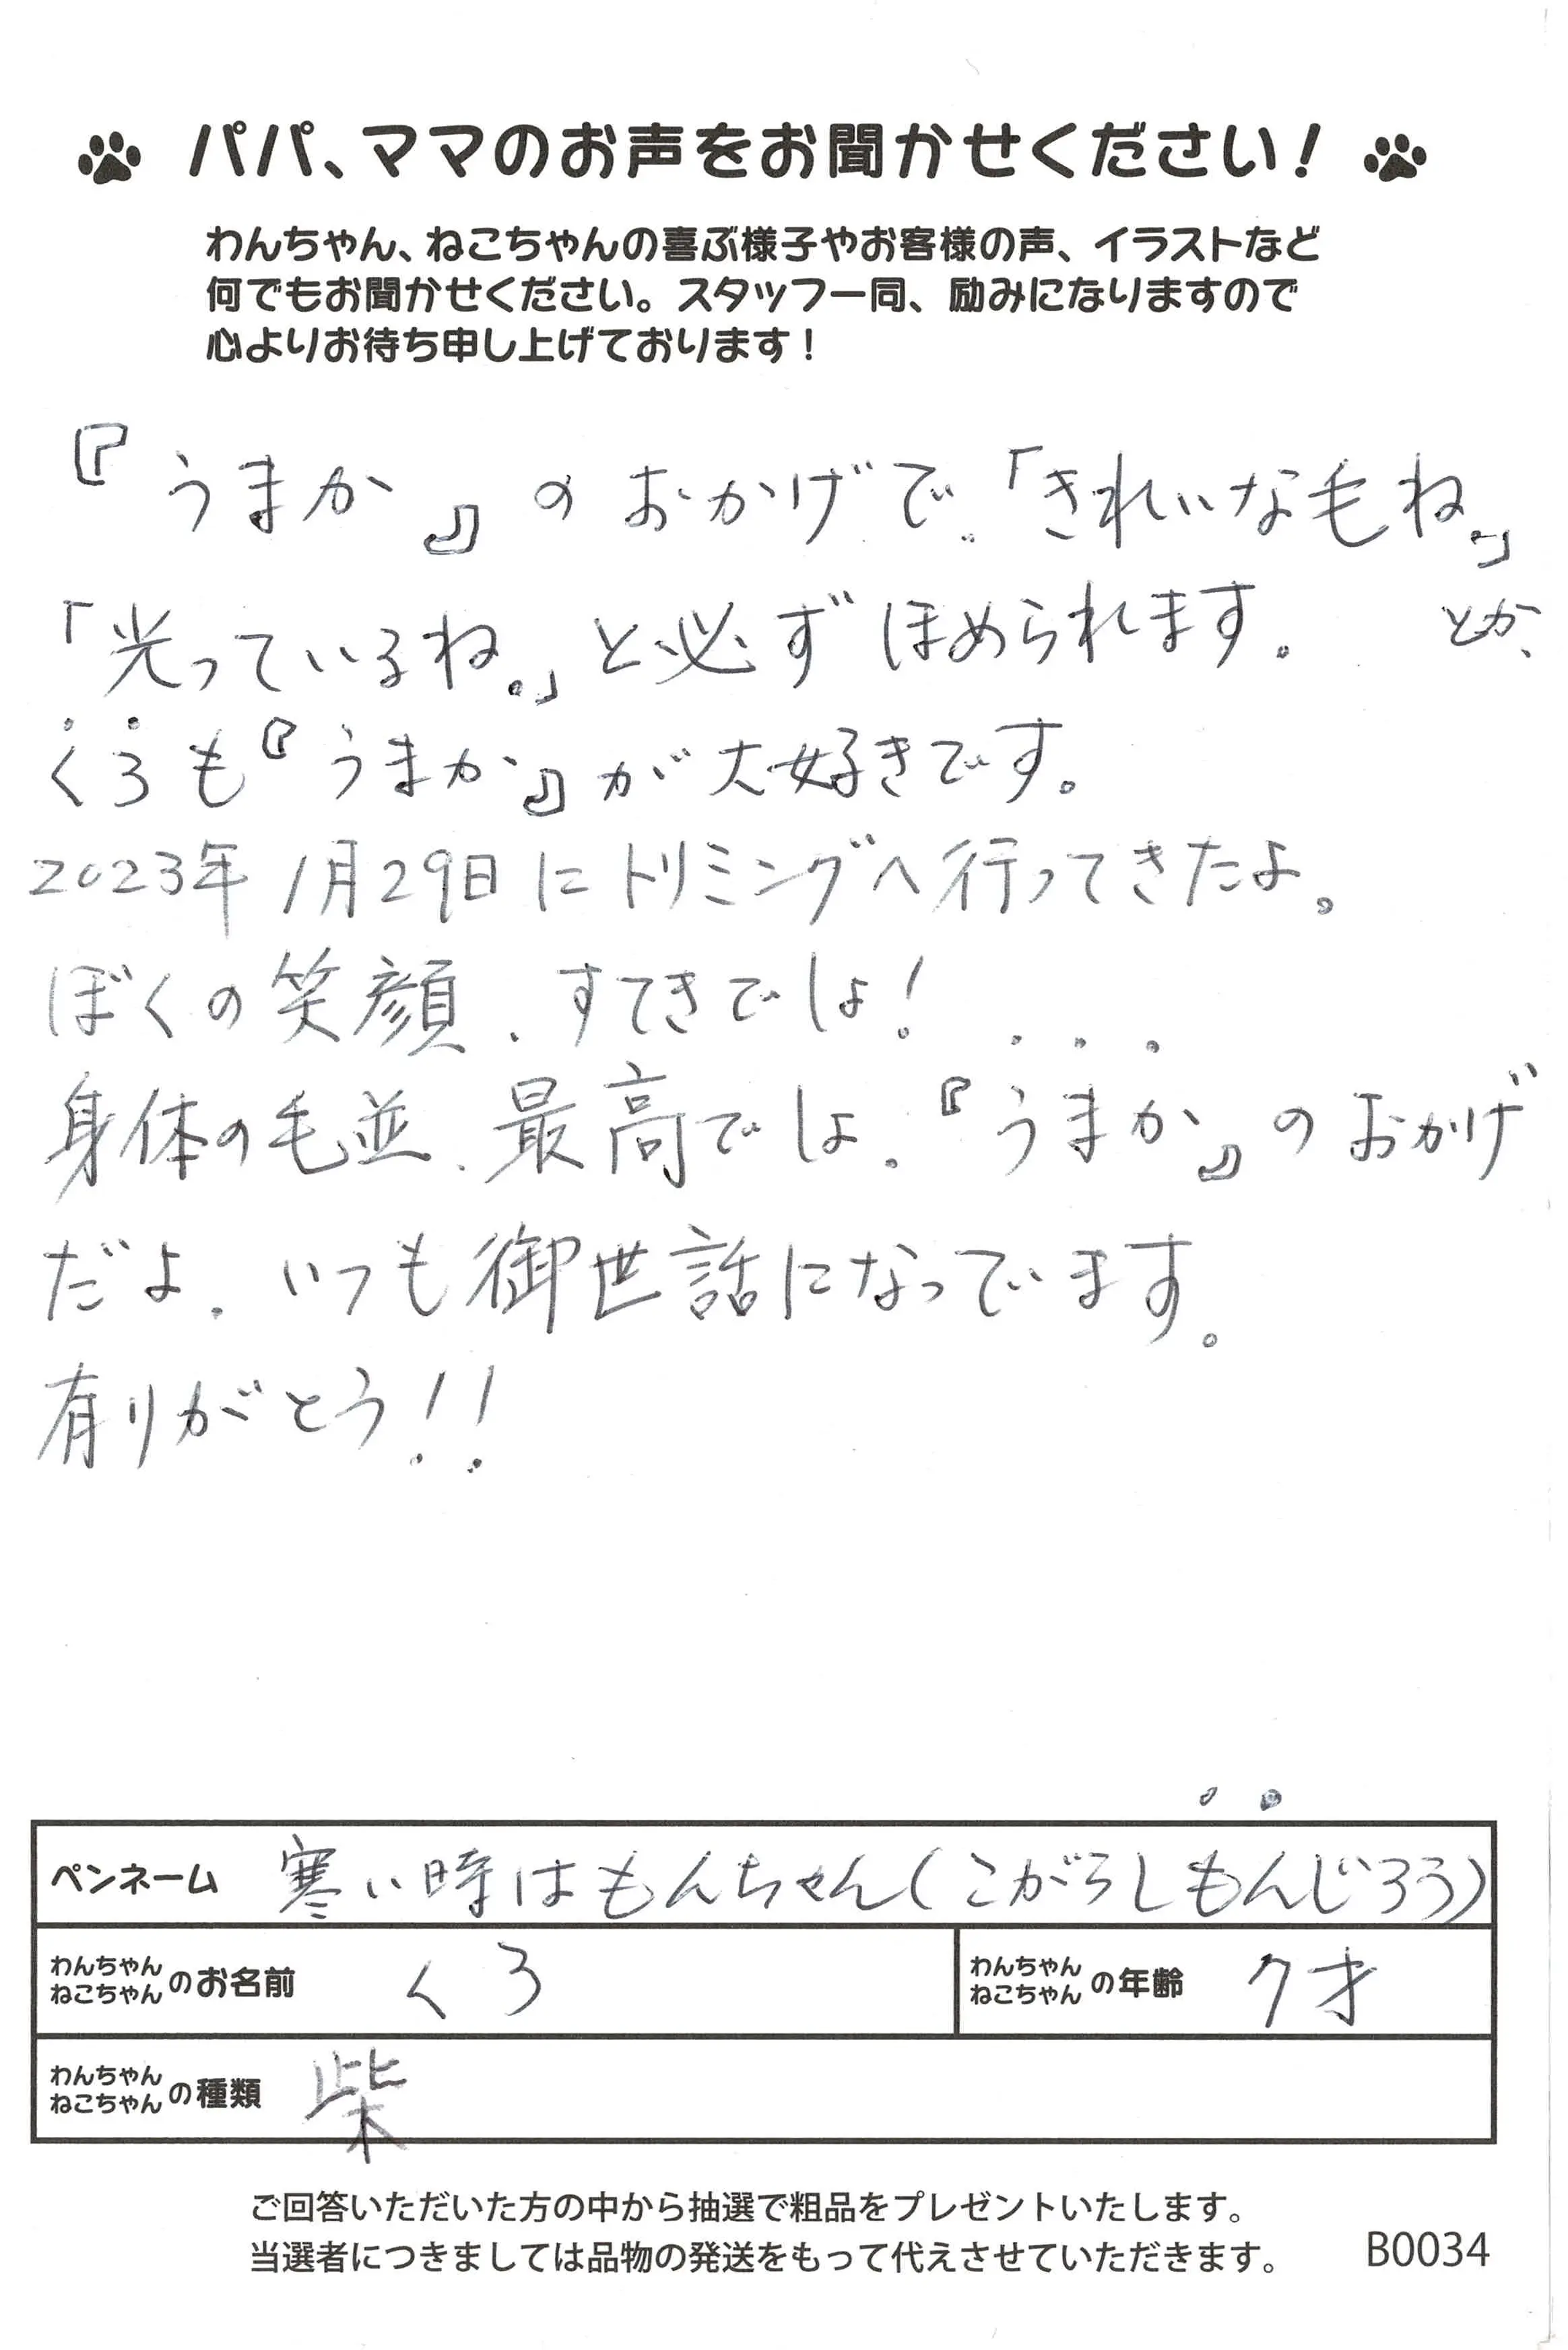 パパ、ママのお声をお聞かせください！
わんちゃん、ねこちゃんの喜ぶ様子やお客様の声、イラストなど
何でもお聞かせください。スタッフ一同、励みになりますので
心よりお待ち申し上げております！
『うまか』のおかげで「きれいな毛ね。」とか、
「光っているね。」と必ずほめられます。
くろも『うまか』が大好きです。
2023年1月29日にトリミングへ行ってきたよ。
ぼくの笑顔、すてきでしょ！
身体の毛並、最高でしょ。『うまか』のおかげ
だよ。いつも御世話になってます。
有りがとう！！
ペンネーム 寒い時はもんちゃん（こがらしもんじろう）
わんちゃん ねこちゃん のお名前 くろ
わんちゃん ねこちゃん の年齢 7才
わんちゃん ねこちゃん の種類 柴
ご回答いただいた方の中から抽選で粗品をプレゼントいたします。
当選者につきましては品物の発送をもって代えさせていただきます。
B0034